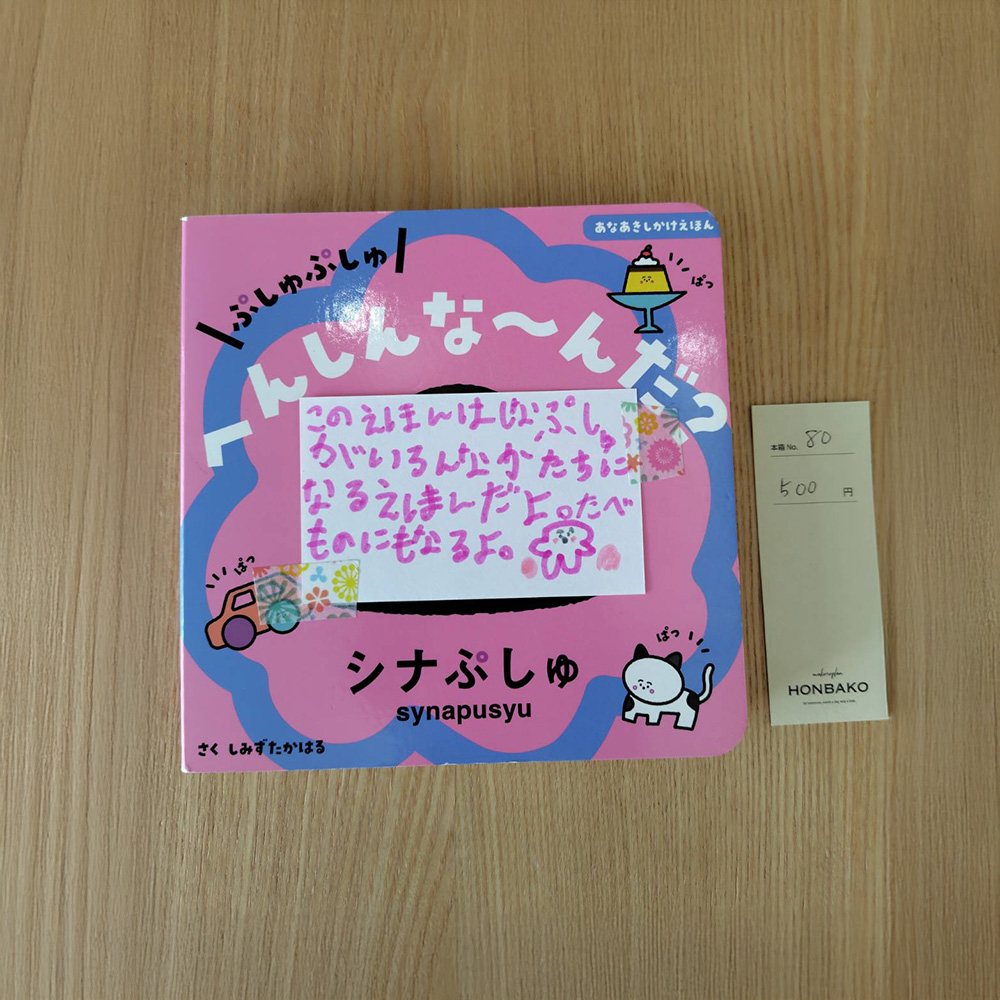 あなあきしかけえほん
ぷしゅぷしゅ
へんしんな〜んだっ
ぱっ
このえほんはしなぷしゅ
がいろんなかたちに
なるえほんだよ。たべ
ものにもなるよ。
ぱっ
ぱっ
シナぷしゅ
synapusyu
さく しみずたかはる
本箱 No. 80
500 円
HONBAKO